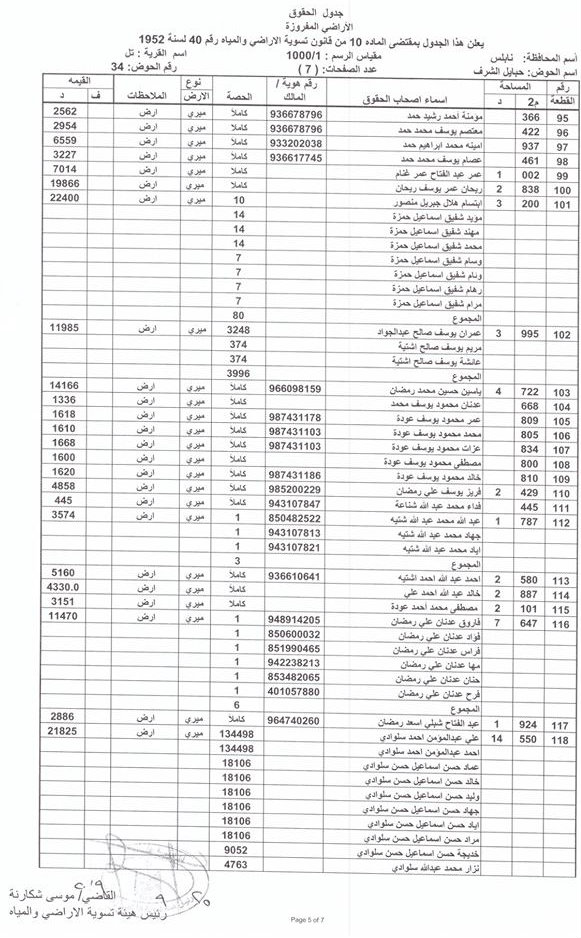 جدول الحقوق
الأراضي المفروزة
يعلن هذا الجدول بمقتضى الماده 10 من قانون تسوية الاراضي والمياه رقم 40 لسنة 1952
أسم المحافظة: نابلس مقياس الرسم : 1000/1 اسم القرية : تل
اسم الحوض: حبايل الشرف عدد الصفحات: ( 7 ) رقم الحوض: 34
رقم القطعة المساحة م2 د اسماء اصحاب الحقوق رقم هوية / المالك الحصة نوع الارض الملاحظات القيمه ف د
95 366 مومنة احمد رشيد حمد 936678796 كاملا ميري ارض 2562
96 422 معتصم يوسف محمد حمد 936678796 كاملا ميري ارض 2954
97 937 امينه محمد ابراهيم حمد 933202038 كاملا ميري ارض 6559
98 461 عصام يوسف محمد حمد 936617745 كاملا ميري ارض 3227
99 002 1 عمر عبد الفتاح عمر غنام كاملا ميري ارض 7014
100 838 2 ريحان عمر يوسف ريحان كاملا ميري ارض 19866
101 200 3 ابتسام هلال جبريل منصور 10 ميري ارض 22400
مؤيد شفيق اسماعيل حمزة 14
مهند شفيق اسماعيل حمزة 14
محمد شفيق اسماعيل حمزة 14
وسام شفيق اسماعيل حمزة 7
ونام شفيق اسماعيل حمزة 7
رهام شفيق اسماعيل حمزة 7
مرام شفيق اسماعيل حمزة 7
المجموع 80
102 995 3 عمران يوسف صالح عبدالجواد 3248 ميري ارض 11985
مريم يوسف صالح اشتية 374
عائشة يوسف صالح اشتية 374
المجموع 3996
103 722 4 ياسين حسين محمد رمضان 966098159 كاملا ميري ارض 14166
104 668 عدنان محمود يوسف محمد كاملا ميري ارض 1336
105 809 عمر محمود يوسف عودة 987431178 كاملا ميري ارض 1618
106 805 محمد محمود يوسف عودة 987431103 كاملا ميري ارض 1610
107 834 عزات محمود يوسف عودة 987431103 كاملا ميري ارض 1668
108 800 مصطفى محمود يوسف عودة كاملا ميري ارض 1600
109 810 خالد محمود يوسف عودة 987431186 كاملا ميري ارض 1620
110 429 2 فريز يوسف علي رمضان 985200229 كاملا ميري ارض 4858
111 445 فداء محمد عبد الله شناعة 943107847 كاملا ميري ارض 445
112 787 1 عبد الله محمد عبد الله شتيه 850482522 1 ميري ارض 3574
جهاد محمد عبد الله شتيه 943107813 1
اياد محمد عبد الله شتيه 943107821 1
المجموع 3
113 580 2 احمد عبد الله احمد اشتيه 936610641 كاملا ميري ارض 5160
114 887 2 خالد عبد الله احمد علي كاملا ميري ارض 4330.0
115 101 2 مصطفى محمد احمد عودة كاملا ميري ارض 3151
116 647 7 فاروق عدنان علي رمضان 948914205 1 ميري ارض 11470
فؤاد عدنان علي رمضان 850600032 1
فراس عدنان علي رمضان 851990465 1
مها عدنان علي رمضان 942238213 1
حنان عدنان علي رمضان 853482065 1
فرح عدنان علي رمضان 401057880 1
المجموع 6
117 924 1 عبد الفتاح شبلي اسعد رمضان 964740260 كاملا ميري ارض 2886
118 550 14 علي عبدالمؤمن احمد سلوادي 134498 ميري ارض 21825
احمد عبدالمؤمن احمد سلوادي 134498
عماد حسن اسماعيل حسن سلوادي 18106
خالد حسن اسماعيل حسن سلوادي 18106
وليد حسن اسماعيل حسن سلوادي 18106
جهاد حسن اسماعيل حسن سلوادي 18106
اياد حسن اسماعيل حسن سلوادي 18106
مراد حسن اسماعيل حسن سلوادي 18106
خديجة حسن اسماعيل حسن سلوادي 9052
نزار محمد عبدالله سلوادي 4763
القاضي/ موسى شكارنة
رئيس هيئة تسوية الاراضي والمياه
Page 5 of 7